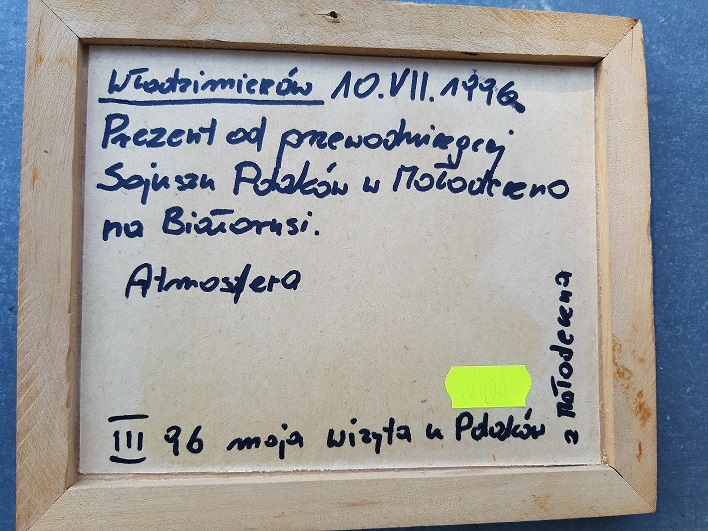 Włodzimierzów 10.VII.1996r.
Prezent od przewodniczącej
Sojuszu Polaków w Mołodeczno
na Białorusi.
Atmosfera
III 96 moja wizyta u Polaków
z Mołodeczna